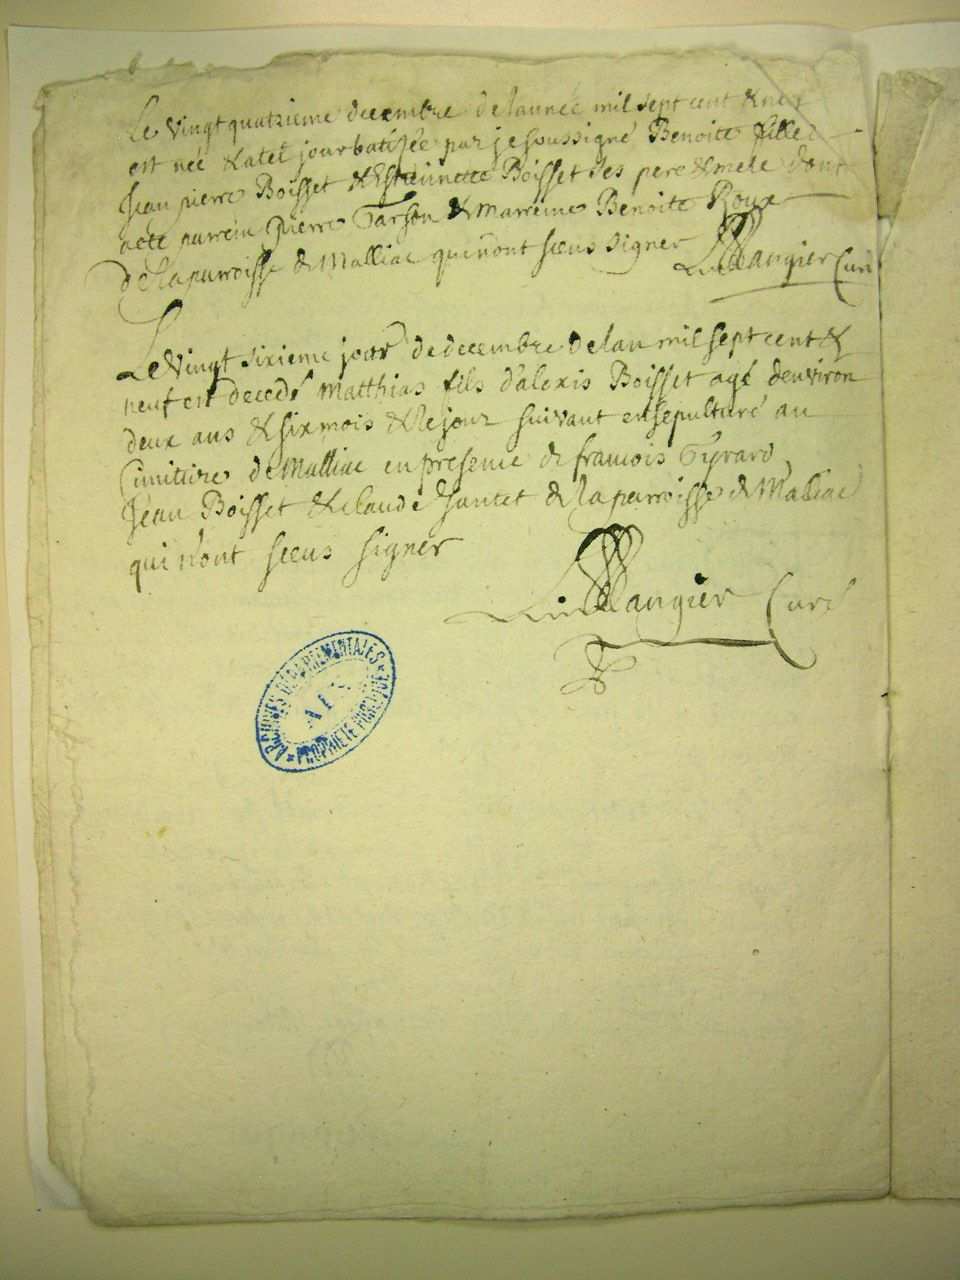 Le vingt quatrieme decembre de lannée mil sept cent & neuf
est née & a tel jour batisée par je soussigné Benoite fille d
Jean pierre Boisset & Estiennette Boisset ses pere & mere dont
acte parrein Pierre Tarson & marreine Benoite Roux
de la parroisse de Malliac qui n'ont sceus signer Laugier Curé
Le vingt sixieme jour de decembre de lan mil sept cent &
neuf est decedé Matthias fils d'alexis Boisset agé denviron
deux ans & six mois & le jour suivant ensepulturé au
Cimitiere de Malliac en presence de francois Gyrard
Jean Boisset & claude Jantet de la parroisse de Malliac
qui n'ont sceus signer
Laugier Curé
ARCHIVES DÉPARTEMENTALES
AIN
PROPRIÉTÉ PUBLIQUE